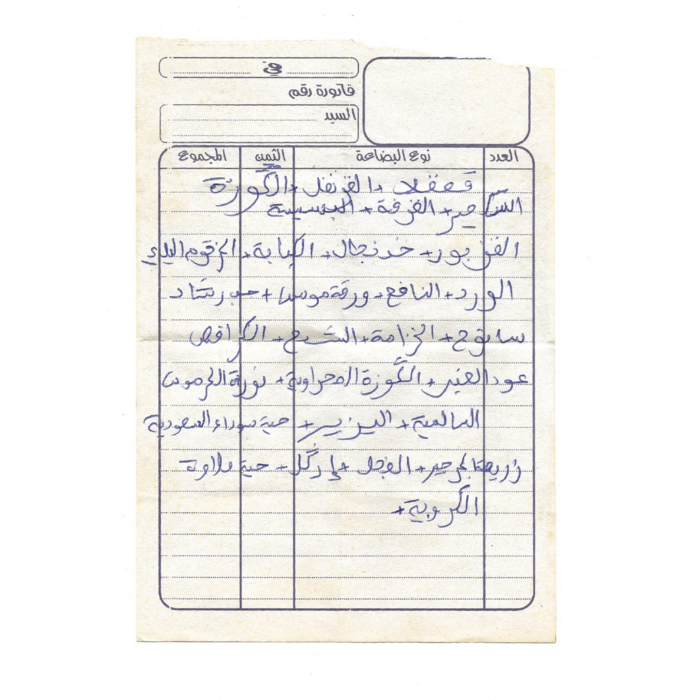 في
فاتورة رقم
السيد
العدد نوع البضاعة الثمن المجموع
قعقلا + القرنفل + الگوزة
السكنجبير + القرفة + البسيبسة
+ خدنجال + الكبابة + الزقوم البلدي
الورد + النافع + ورقة موسى + حب رشاد
سانوج + الخزامة + الشيح + الكرافص
عود العنبر + الگوزة الصحراوية + نورة الخرموس
السالمية + اليزير + حبة سوداء السعودية
زريعة الجرجير + الفجل + حبة حلاوة
الگروية +